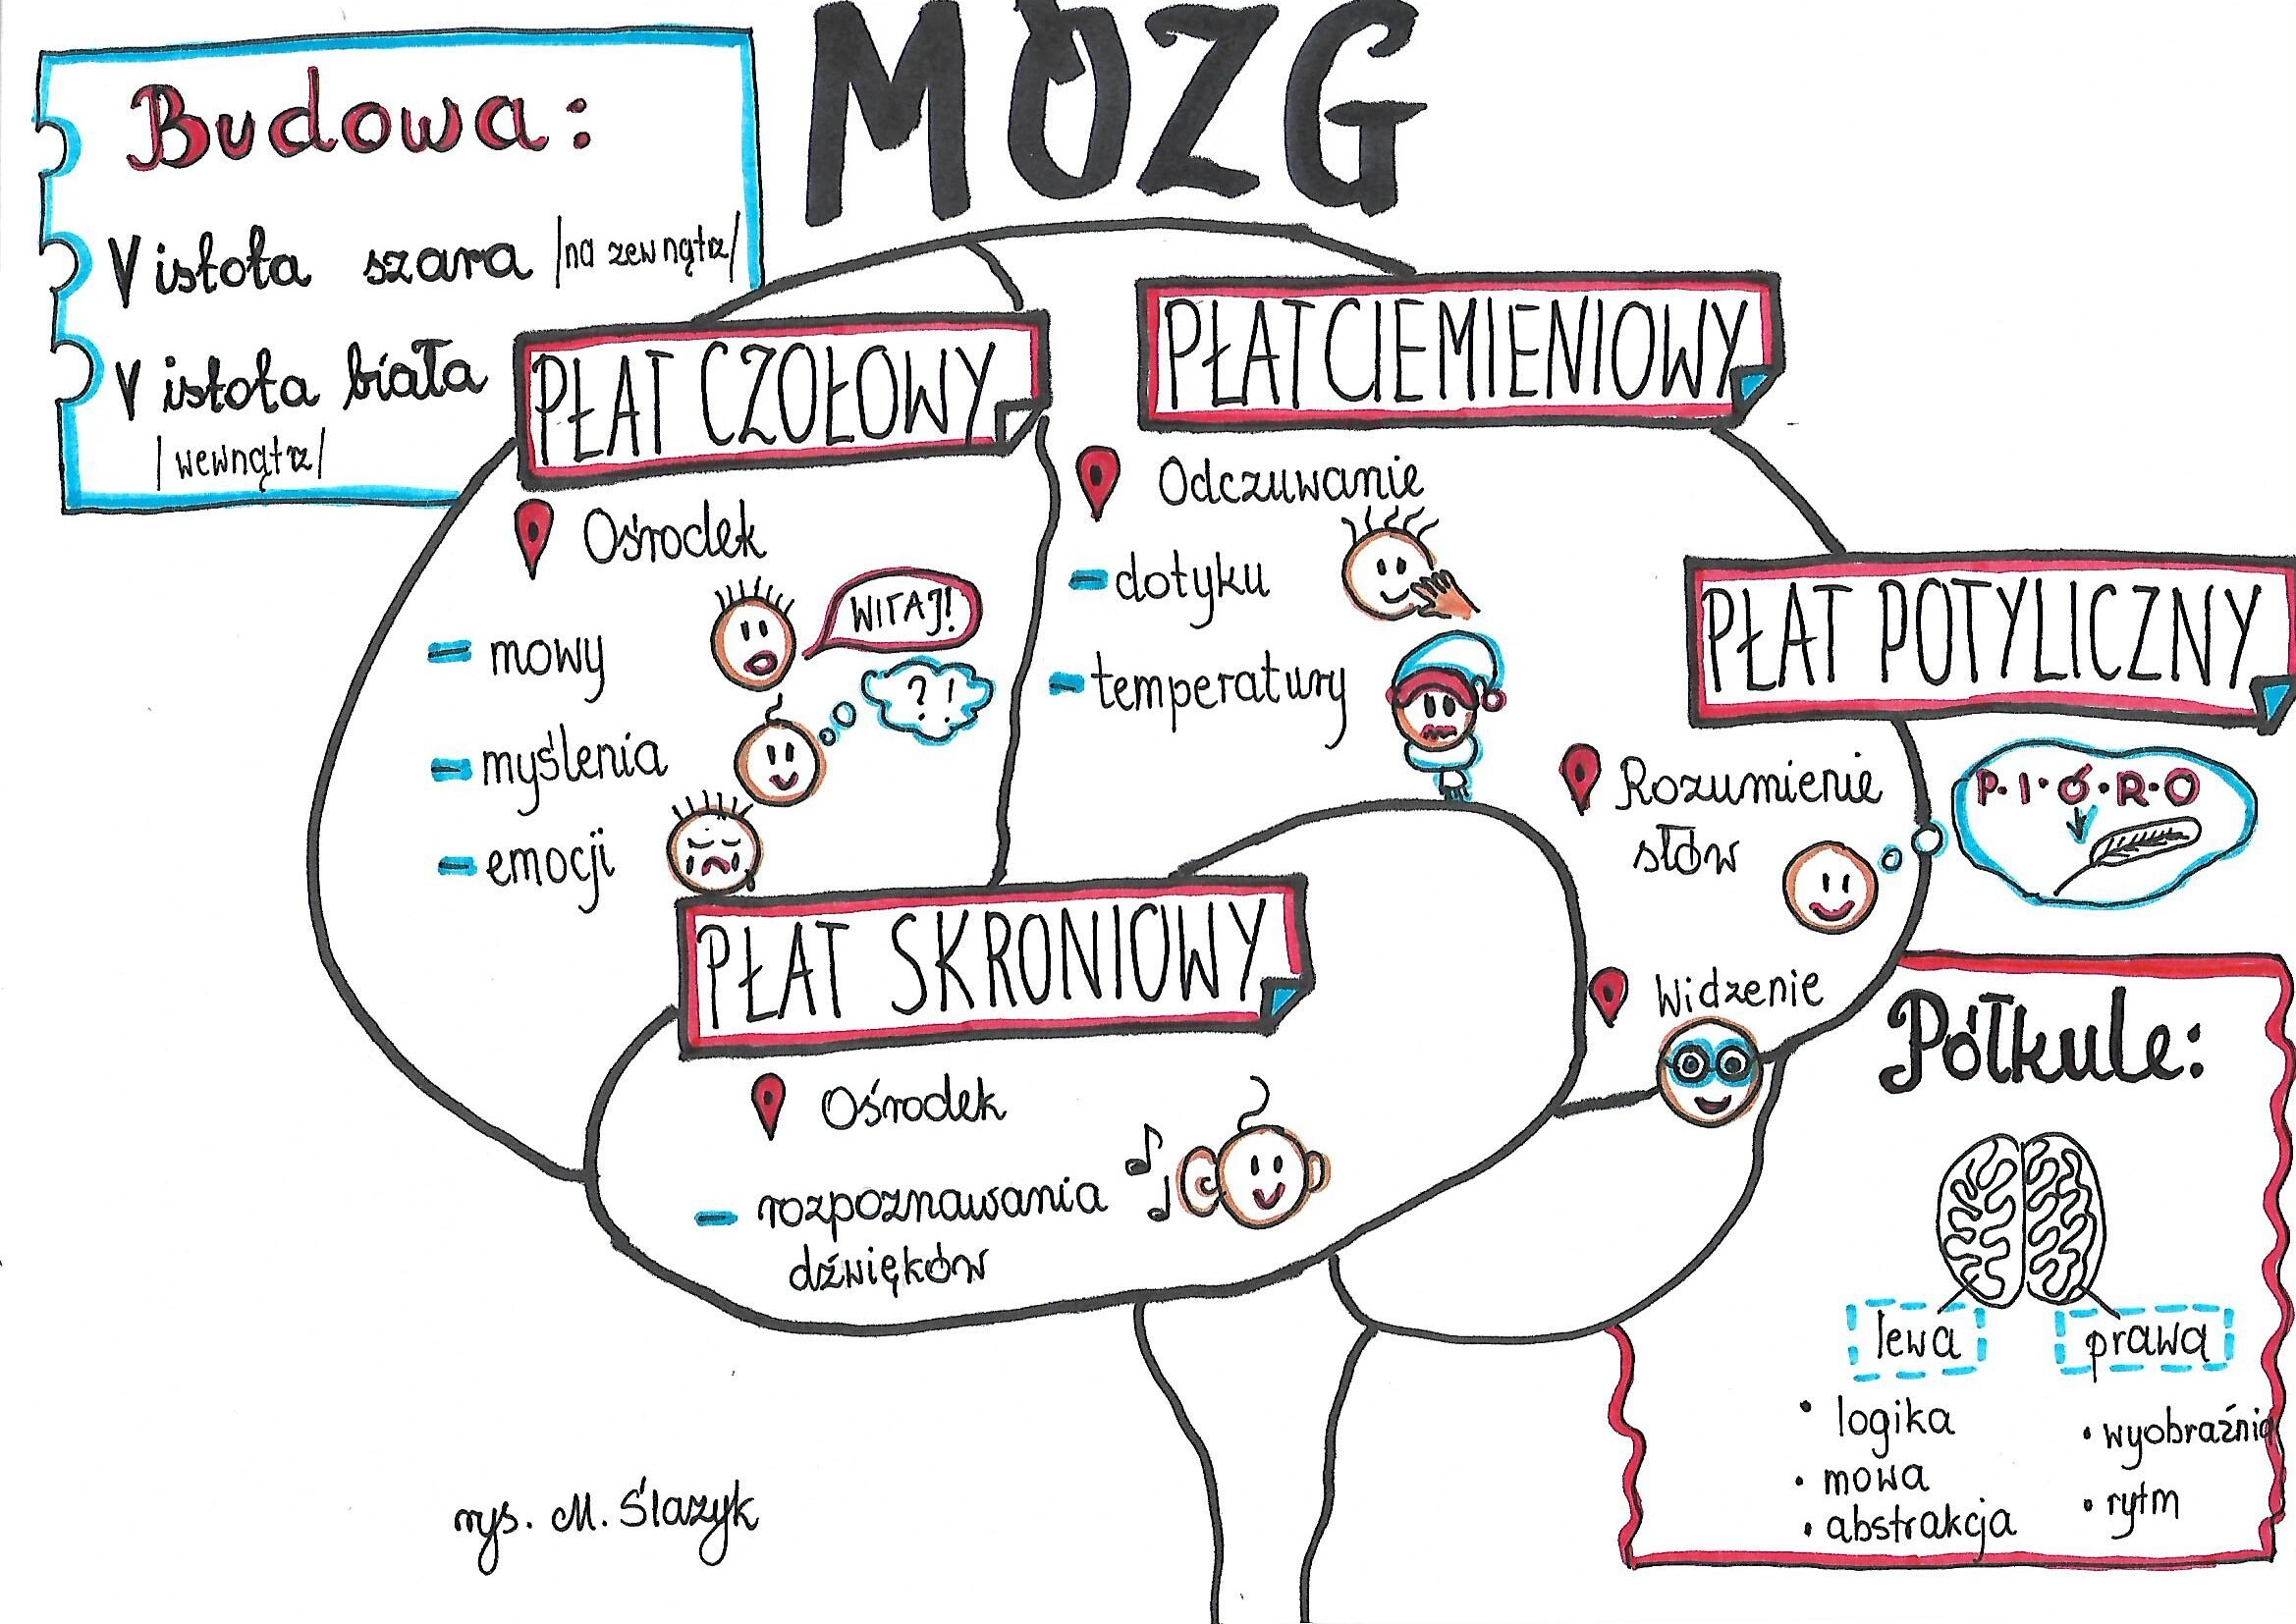 MÓZG
Budowa:
V istota szara /na zewnątrz/
V istota biała
/wewnątrz/
PŁAT CZOŁOWY
Ośrodek
- mowy
WITAJ!
- myślenia
?!
- emocji
PŁAT CIEMIENIOWY
Odczuwanie
- dotyku
- temperatury
PŁAT POTYLICZNY
Rozumienie
słów
P·I·Ó·R·O
Widzenie
PŁAT SKRONIOWY
Ośrodek
- rozpoznawania
dźwięków
Półkule:
lewa
• logika
• mowa
• abstrakcja
prawa
• wyobraźnia
• rytm
rys. M. Ślazyk